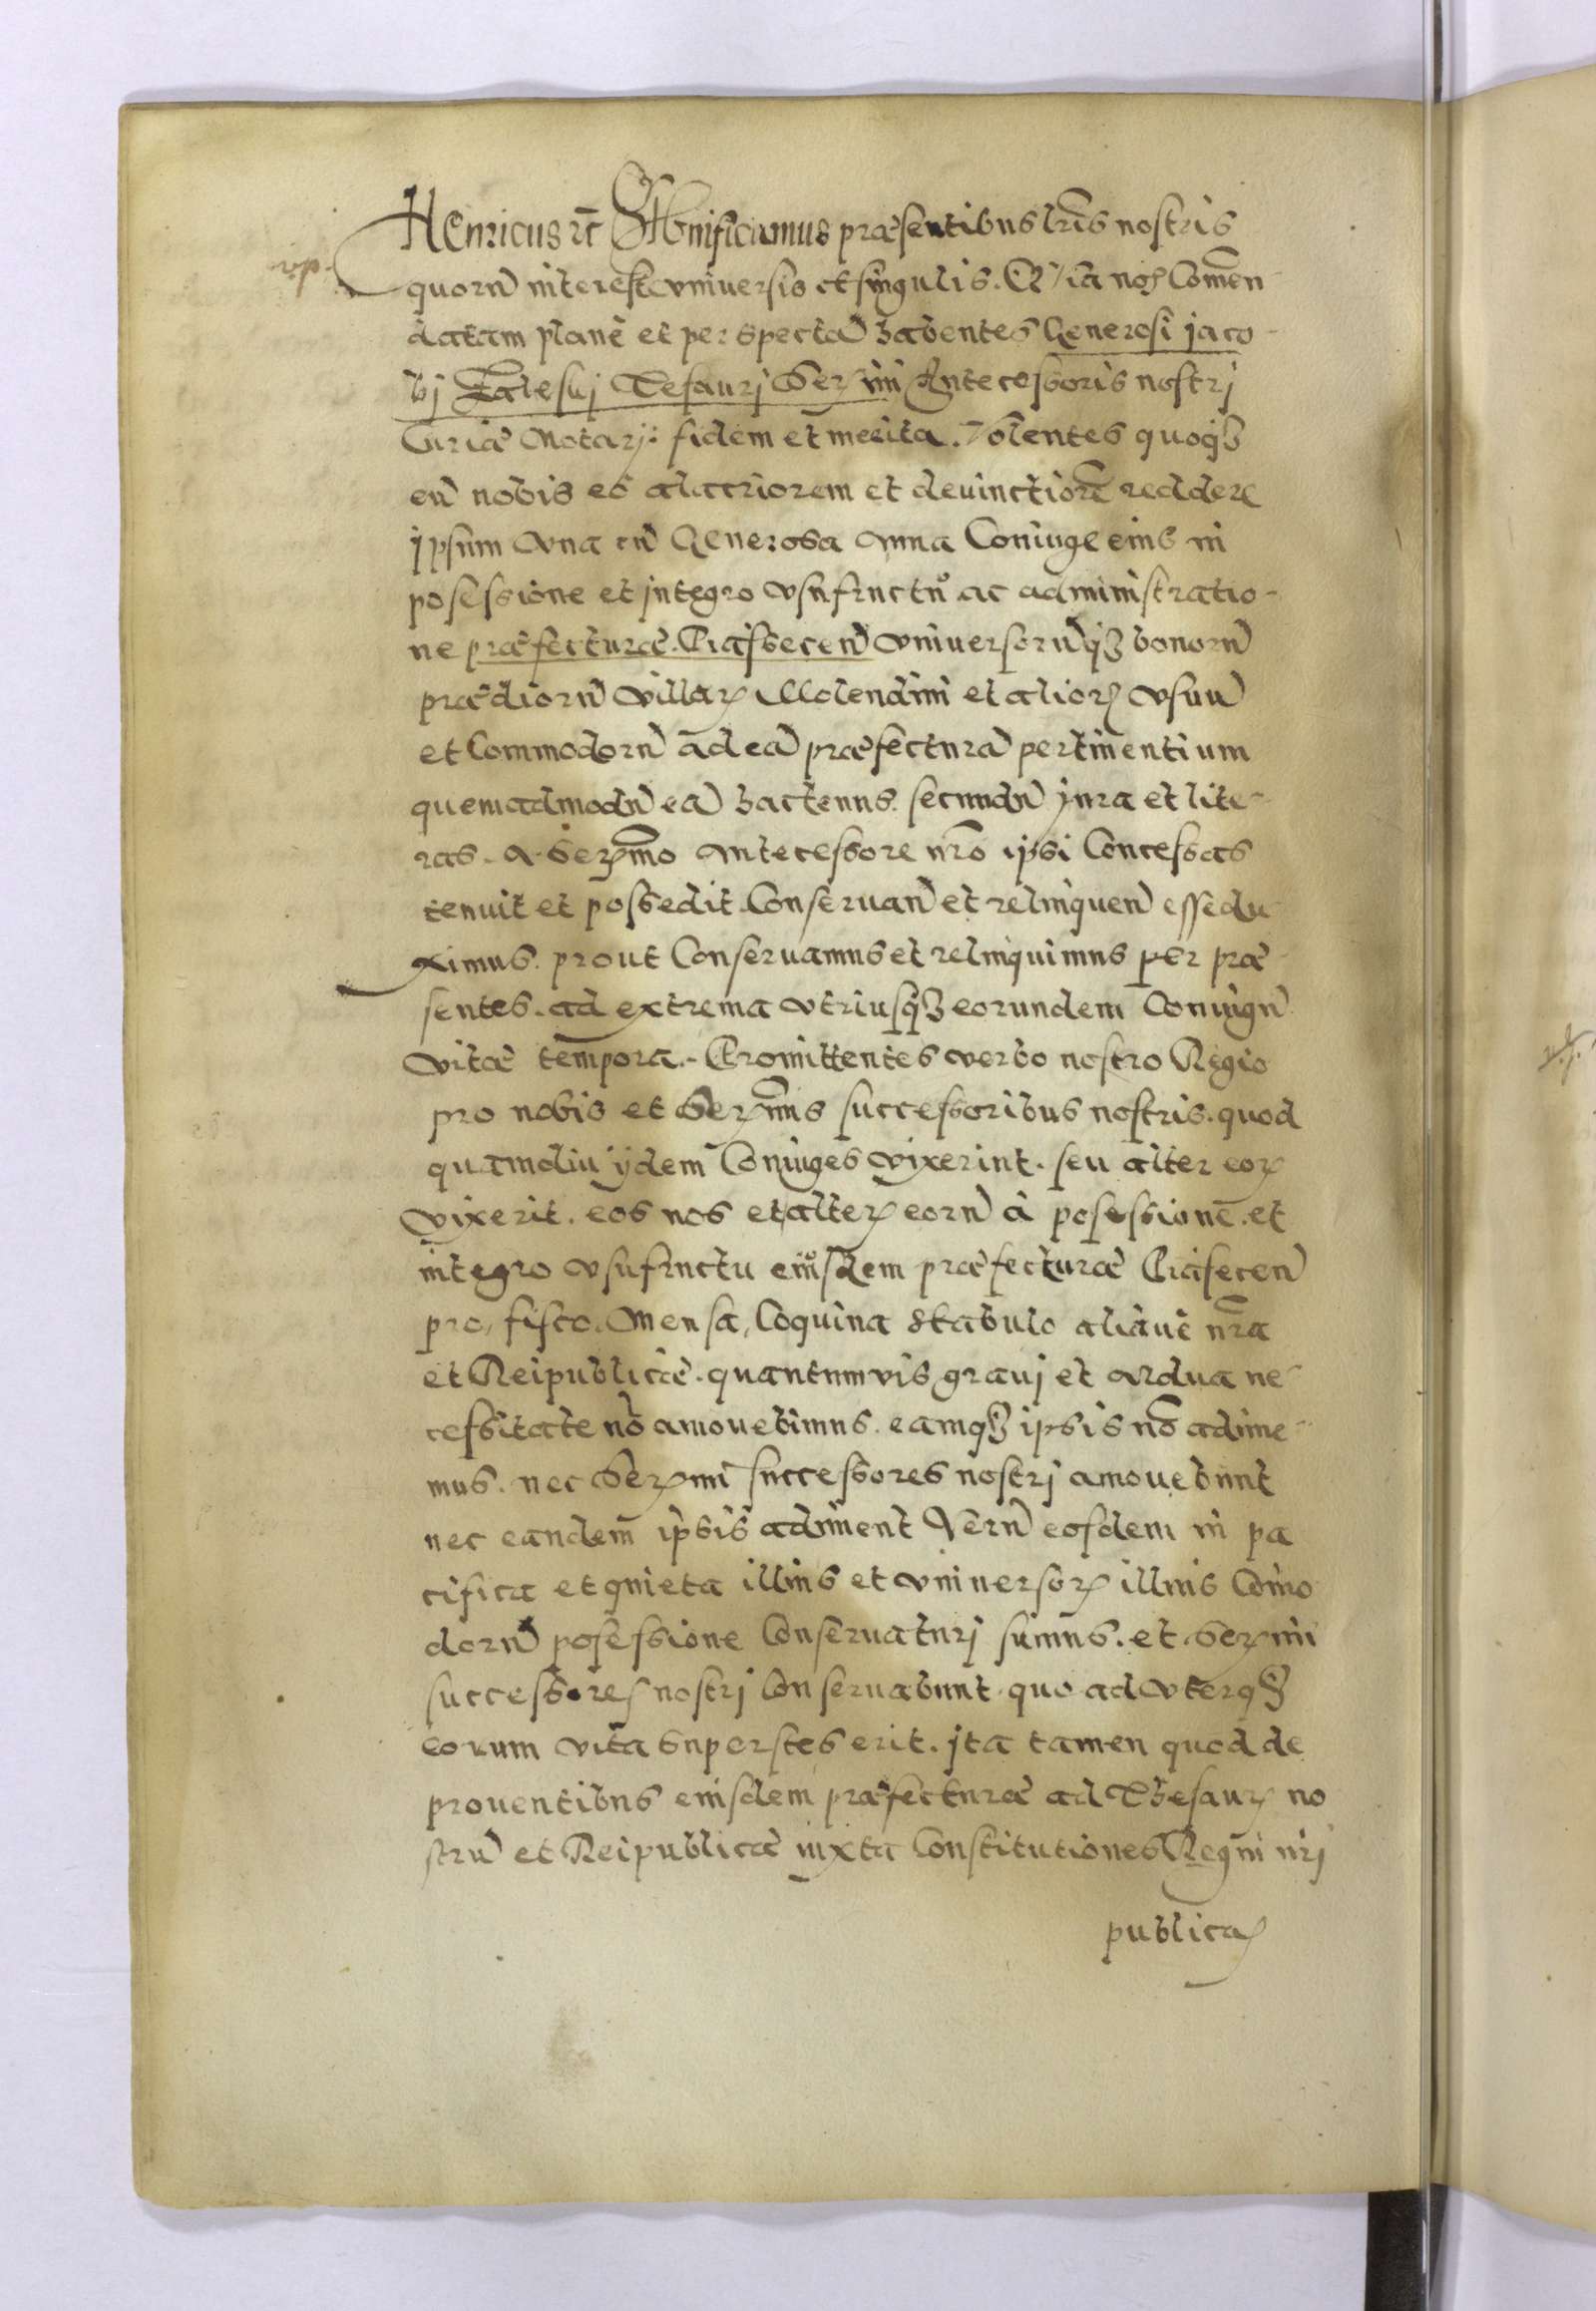 Henricus etc Significamus præsentibus lr̃is nostris
quorũ interest vniuersis et singulis. Quia nos Com̃en
datam planè et perspectã habentes Generosi jaco
bj Zalesuj Tesaurj Ser mi Antecessoris nostrj
Curiæ Notarij: fidem et merita. Volentes quoq₃
eũ nobis eò alacriorem et deuinctiorẽ reddere
jpsum vna cũ Generosa Anna Coniuge eius in
posessione et jntegro vsufructu ac administratio-
ne præfecturæ. Piasecen̄ vniuersorũq₃ bonorũ
prædiorũ villarꝝ Molendini et aliorꝝ vsuũ
et Commodorũ ad eã præfecturã pertinentium
quemadmodũ eã hactenus. secundũ jura et lite-
ras. a Serꝫmo Antecessore nr̃o ipsi Concessas
tenuit et possedit Conseruan̄ et relinquen̄ esse du
ximus. prout Conseruamus et relinquimus per præ
sentes. ad extrema vtriusq₃ eorundem Coniugũ
vitæ tempora.- Promittentes verbo nostro Regio
pro nobis et Serꝫmis successoribus nostris. quod
quamdiu ijdem Coniuges vixerint. seu alter eorꝝ
vixerit. eos nos et alterꝝ eorũ à posessionẽ. et
integro vsufructu eiusdem præfecturæ Piasecen̄
pro, fisco. Mensa, Coquina Stabulo aliàuè nr̃a
et Reipublicæ. quantumvis grauj et Ardua ne-
cessitate nõ amouebimus. eamq₃ ipsis nõ adime-
mus. nec Serꝫmi successores nostrj amouebunt
nec eandem̃ ipsis adiment Verũ eosdem in pa
cifica et quieta illius et vniuersorꝝ illius Com̃o
dorũ posessione Conseruaturj sumus. et Serꝫmi
successores nostrj Conseruabunt quo ad vterq₃
eorum vita Superstes erit. jta tamen quod de
prouentibus eiusdem præfecturæ ad Thesaurꝝ no
strũ et Reipublicæ iuxta Constitutiones Regni nr̃j
publicaꝝ